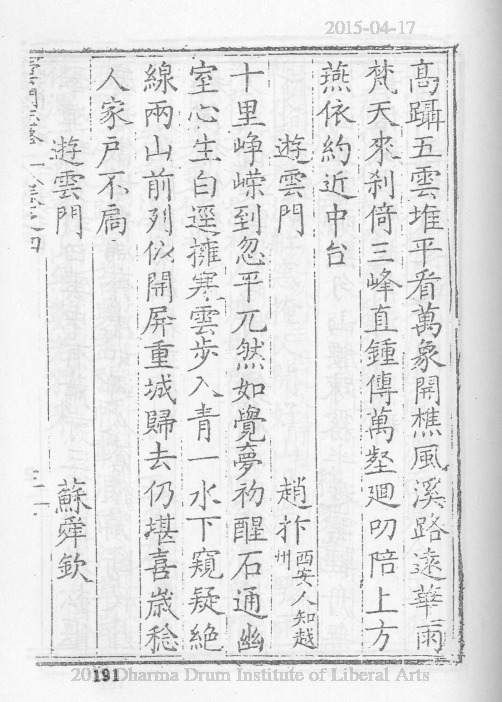 2015-04-17
高躡五雲堆平看萬象開樵風溪路遠華雨
梵天來刹倚三峰直鍾傳萬壑迴叨陪上方
燕依約近中台
遊雲門 趙抃西安人知越州
十里崢嶸到忽平兀然如覺夢初醒石通幽
室心生白逕擁寒雲步入青一水下窺疑絕
線兩山前列似開屏重城歸去仍堪喜歲稔
人家戶不扃
遊雲門 蘇舜欽
雲門志略 卷之四
191
Dharma Drum Institute of Liberal Arts